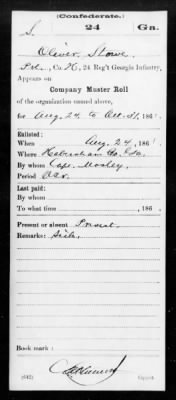 (Confederate.)
S. 24 Ga.
Oliver Stowe
Pvt., Co. H, 24 Reg't Georgia Infantry,
Appears on
Company Muster Roll
of the organization named above,
for Aug. 24 to Oct. 31, 186
Enlisted:
When Aug. 24, 186
Where Habersham Co. Ga.
By whom Capt. Mosley
Period War.
Last paid:
By whom
To what time , 186
Present or absent Present
Remarks: Sick.
Book mark:
(642) Copyist.